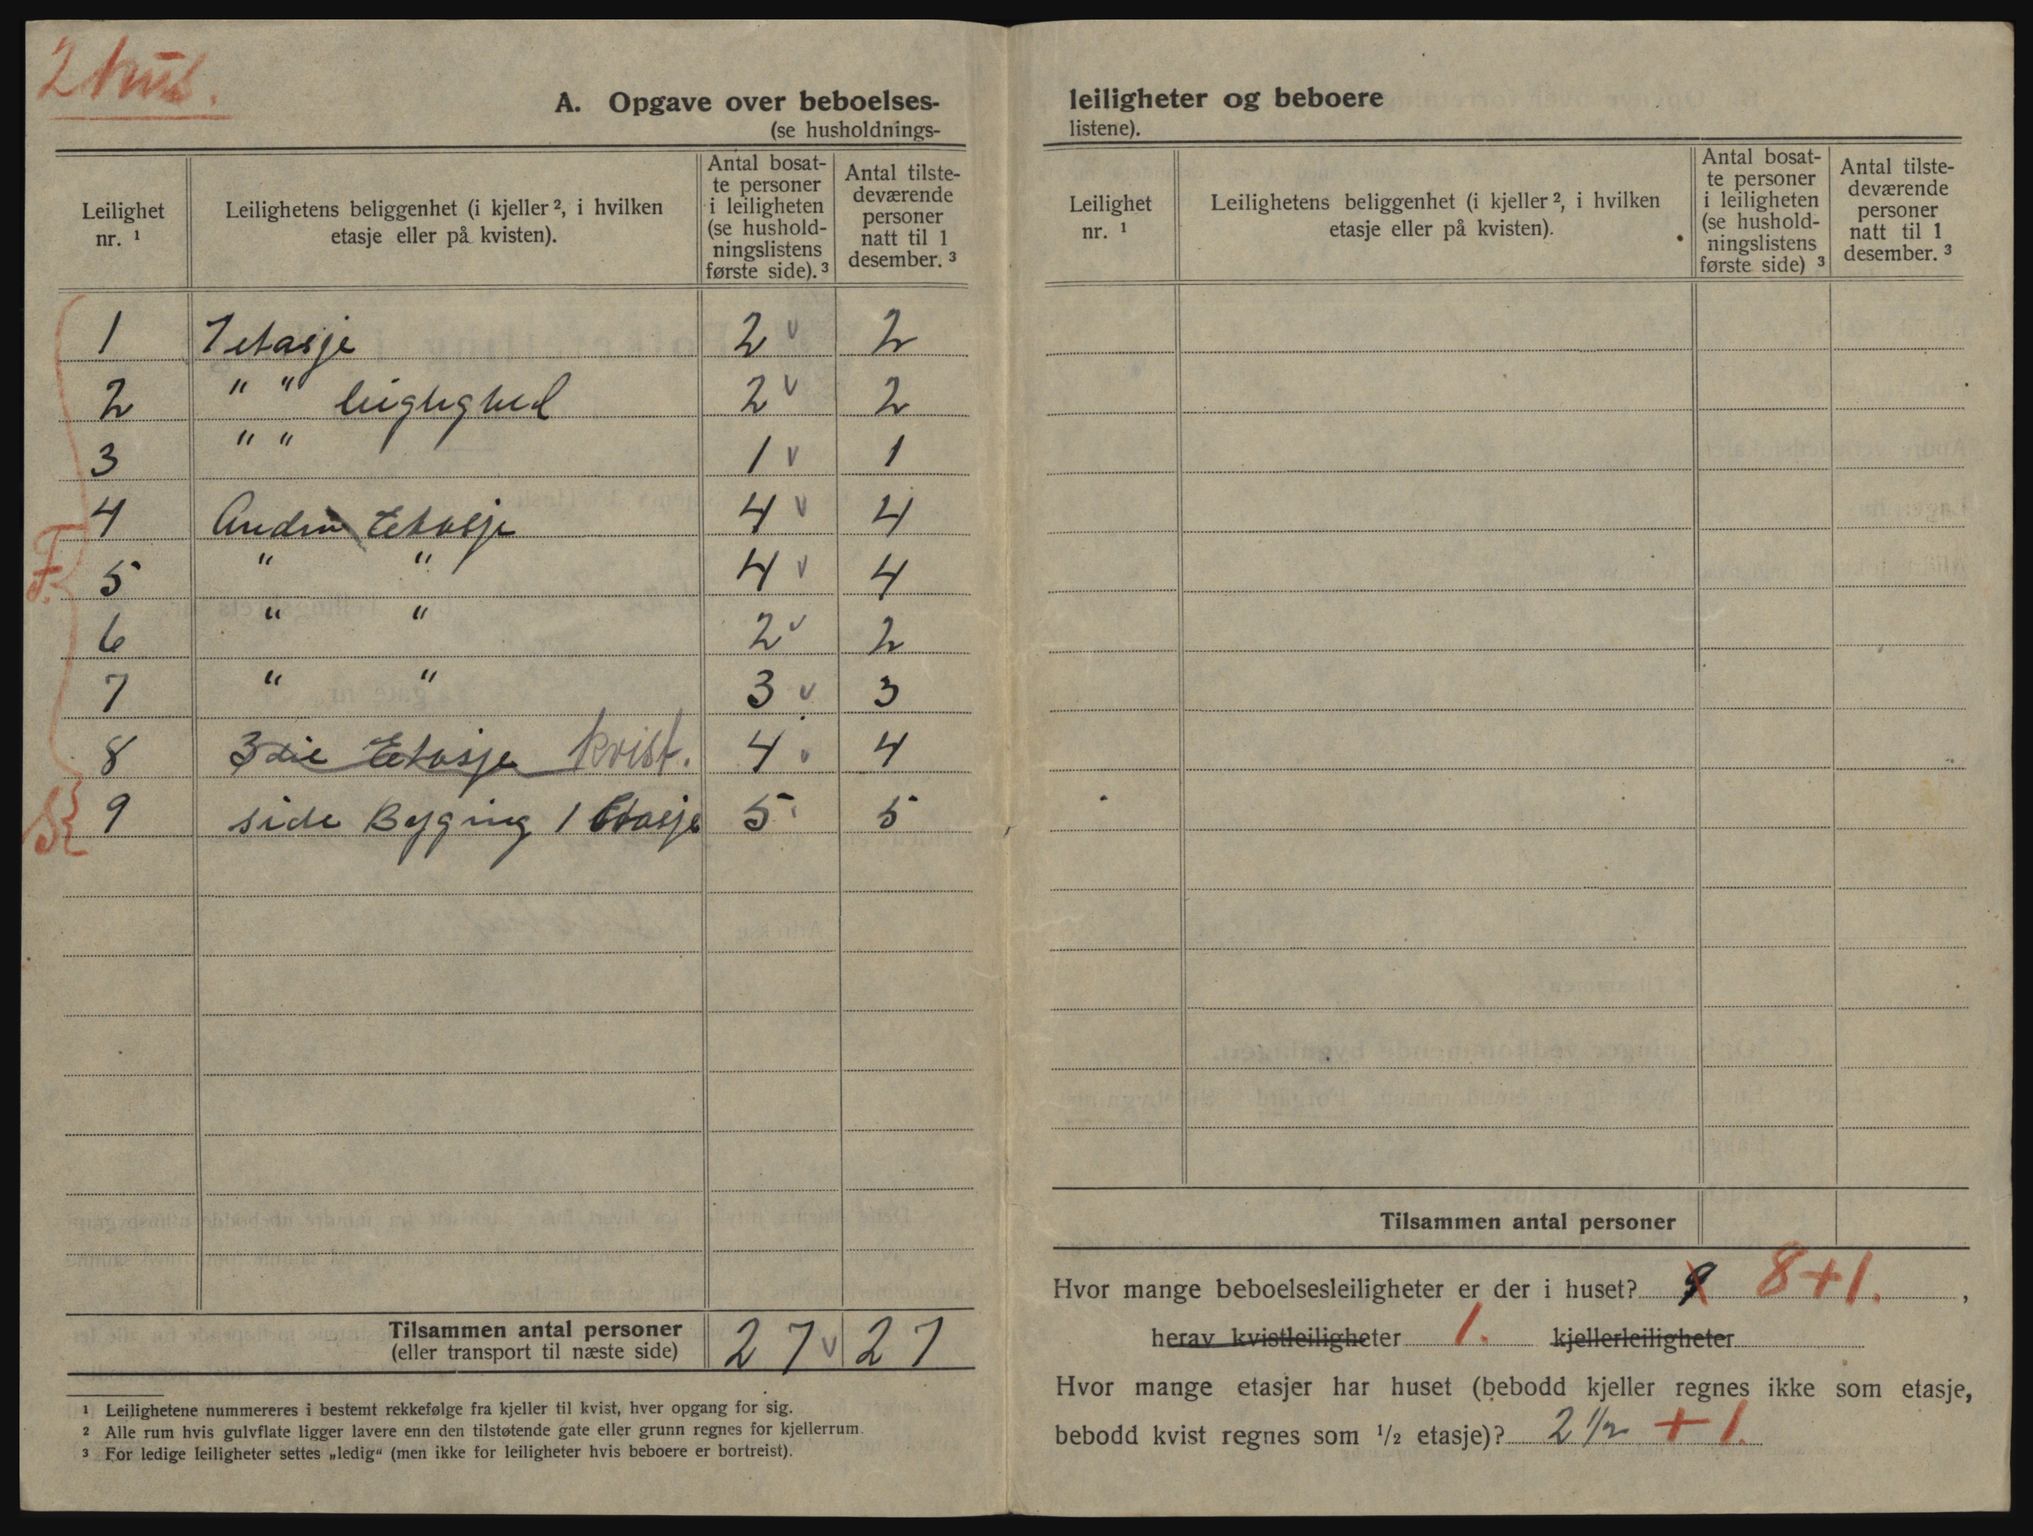 2 hus.
A. Opgave over beboelses-
(se husholdnings-
Leilighet nr. ¹
Leilighetens beliggenhet (i kjeller ², i hvilken etasje eller på kvisten).
Antal bosat-
te personer
i leiligheten
(se hushold-
ningslistens
første side). ³
Antal tilste-
deværende
personer
natt til 1
desember. ³
1 1 etasje 2 v 2
2 " " leighghed 2 v 2
3 " " 1 v 1
4 Andre Etasje 4 v 4
F. 5 " " 4 v 4
6 " " 2 v 2
7 " " 3 v 3
8 3die Etasje kvist. 4 v 4
S. 9 side Bygning 1 Etasje 5 5
Tilsammen antal personer
(eller transport til næste side)
27 v 27
¹ Leilighetene nummereres i bestemt rekkefølge fra kjeller til kvist, hver opgang for sig.
² Alle rum hvis gulvflate ligger lavere enn den tilstøtende gate eller grunn regnes for kjellerrum.
³ For ledige leiligheter settes „ledig“ (men ikke for leiligheter hvis beboere er bortreist).
leiligheter og beboere
listene).
Leilighet nr. ¹
Leilighetens beliggenhet (i kjeller ², i hvilken etasje eller på kvisten).
Antal bosat-
te personer
i leiligheten
(se hushold-
ningslistens
første side) ³
Antal tilste-
deværende
personer
natt til 1
desember. ³
Tilsammen antal personer
Hvor mange beboelsesleiligheter er der i huset? 9 8+1. ,
herav kvistleiligheter 1. kjellerleiligheter
Hvor mange etasjer har huset (bebodd kjeller regnes ikke som etasje,
bebodd kvist regnes som ¹/₂ etasje)? 2 1/2 + 1.